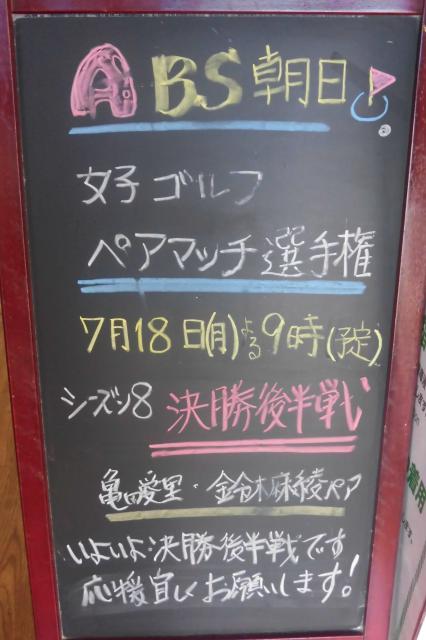 BS朝日
女子ゴルフ
ペアマッチ選手権
7月18日(月)よる9時(予定)
シーズン8 決勝後半戦
亀田愛里・鈴木麻綾ペア
いよいよ決勝後半戦です
応援宜しくお願いします!